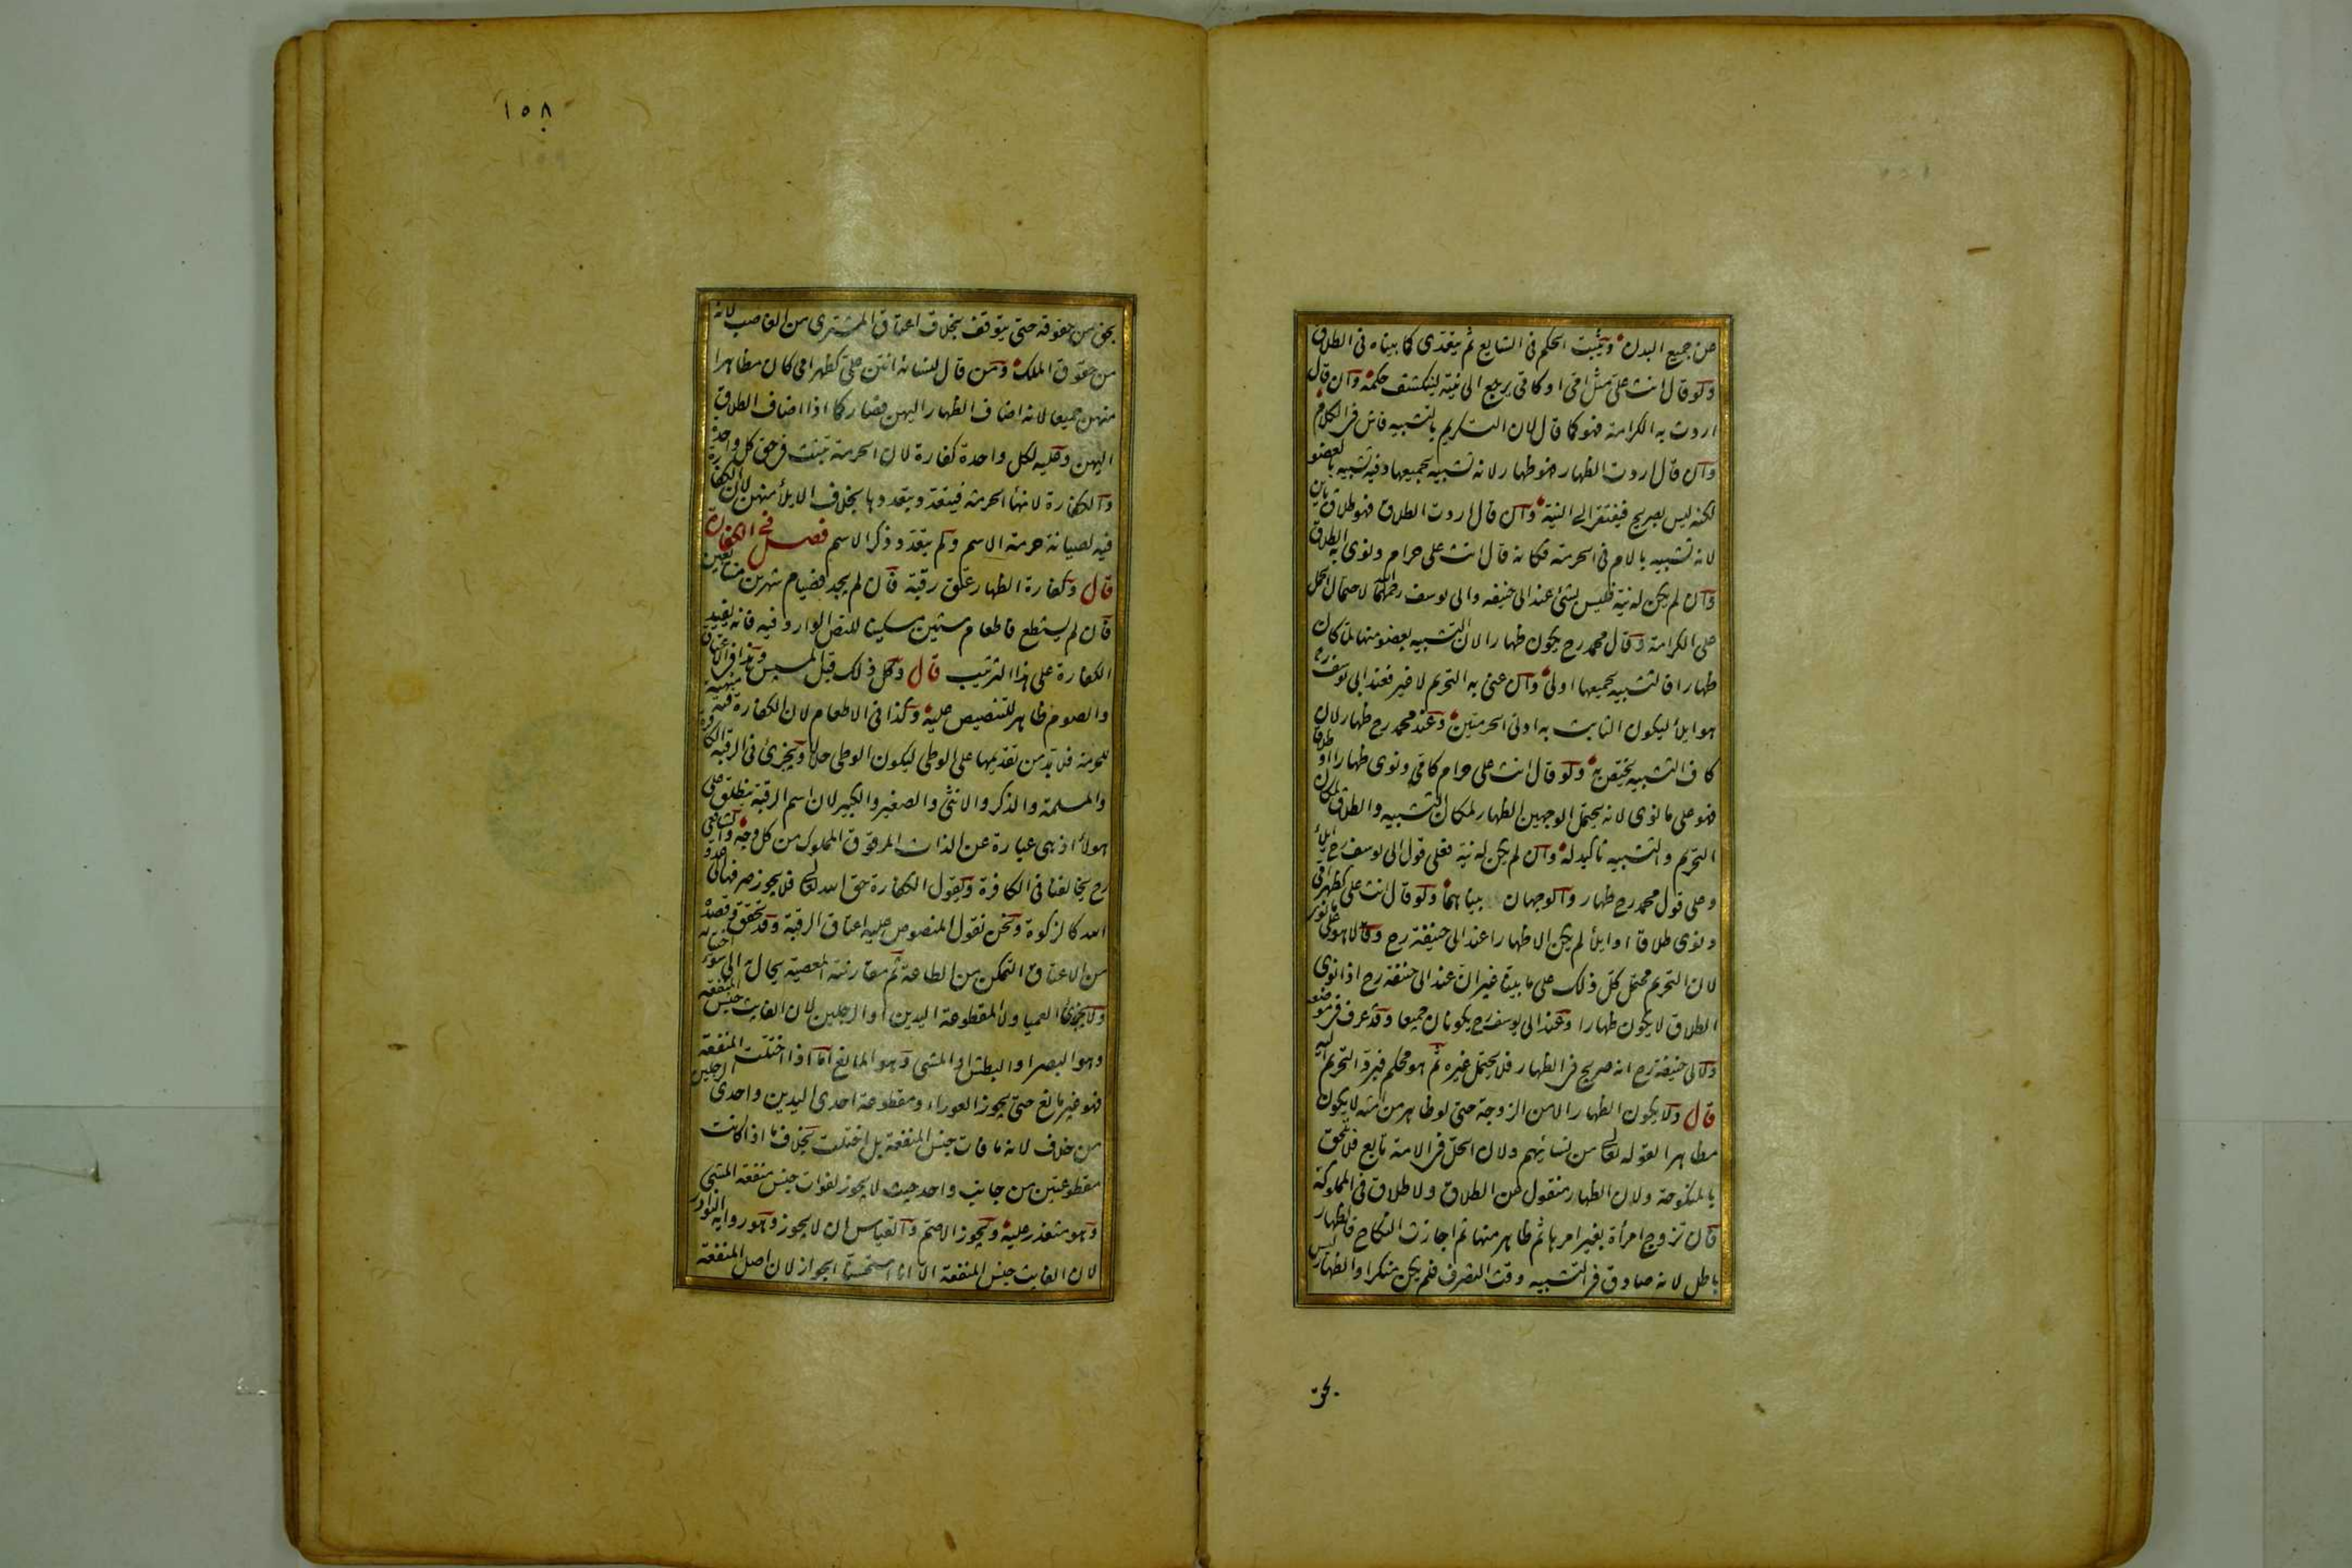 عن جميع البدن ويثبت الحكم فى الشايع ثم يتعدى كما بيناه فى الطلاق
ولو قال انت على مثل امى او كامى يرجع الى نيته لينكشف حكمه وان قال
اردت به الكرامة فهو كما قال لان التكريم بالتشبيه فاش فى الكلام
وان قال اردت الظهار فهو ظهار لانه تشبيه بجميعها وفيه تشبيه بالعضو
لكنه ليس بصريح فيفتقر الى النية وان قال اردت الطلاق فهو طلاق باين
لانه تشبيه بالام فى الحرمة فكانه قال انت على حرام ونوى به الطلاق
وان لم يكن له نية فليس بشئ عند ابى حنيفه وابى يوسف رحمهما لاحتمال الحمل
على الكرامة وقال محمد رح يكون ظهارا لان التشبيه بعضو منها لما كان
ظهارا فالتشبيه بجميعها اولى وان عنى به التحريم لا غير فعند ابى يوسف رح
هو ايلأ ليكون الثابت به ادنى الحرمتين وعند محمد رح ظهار لان
كاف التشبيه يختص به ولو قال انت على حرام كامى ونوى ظهارا او طلاقا
فهو على ما نوى لانه يحتمل الوجهين الظهار لمكان التشبيه والطلاق لمكان
التحريم والتشبيه تاكيد له وان لم يكن له نية فعلى قول ابى يوسف رح ايلأ
وعلى قول محمد رح ظهار والوجهان بيناهما ولو قال انت على كظهر امى
ونوى طلاقا او ايلأ لم يكن الا ظهارا عند ابى حنيفة رح وقالا هو على ما نوى
لان التحريم محتمل كل ذلك على ما بينا غير ان عند ابى حنيفة رح اذا نوى
الطلاق لا يكون ظهارا وعند ابى يوسف رح يكونان جميعا وقد عرف فى موضعه
ولابى حنيفة رح انه صريح فى الظهار فلا يحتمل غيره ثم هو محكم فيرد التحريم اليه
قال ولا يكون الظهار الا من الزوجة حتى لو ظاهر من امته لا يكون
مظاهرا لقوله تعالى من نسائهم ولان الحل فى الامة تابع فلا تلحق
بالمنكوحة ولان الظهار منقول عن الطلاق ولا طلاق فى المملوكة
فان تزوج امرأة بغير امرها ثم ظاهر منها ثم اجازت النكاح فالظهار
باطل لانه صادق فى التشبيه وقت التصرف فلم يكن منكرا والظهار ليس
بحق
١٥٨
بحق من حقوقه حتى يتوقف بخلاف اعتاق المشترى من الغاصب لانه
من حقوق الملك ومن قال لنسائه انتن على كظهر امى كان مظاهرا
منهن جميعا لانه اضاف الظهار اليهن فصار كما اذا اضاف الطلاق
اليهن وعليه لكل واحدة كفارة لان الحرمة تثبت فى حق كل واحدة
والكفارة لانهأ الحرمة فيتعدد بتعددها بخلاف الايلأ منهن لان الكفارة
فيه لصيانة حرمة الاسم ولم يتعدد ذكر الاسم فصل فى الكفارة
قال وكفارة الظهار عتق رقبة فان لم يجد فصيام شهرين متتابعين
فان لم يستطع فاطعام ستين مسكينا للنص الوارد فيه فانه يفيد
الكفارة على هذا الترتيب قال وكل ذلك قبل المسيس وهذا فى الاعتاق
والصوم ظاهر للتنصيص عليه وكذا فى الاطعام لان الكفارة فيه منهية
للحرمة فلا بد من تقديمها على الوطى ليكون الوطى حلالا ويجزئ فى الرقبة الكافرة
والمسلمة والذكر والانثى والصغير والكبير لان اسم الرقبة ينطلق على
هولأ اذ هى عبارة عن الذات المرقوق المملوك من كل وجه والشافعى
رح يخالفنا فى الكافرة ويقول الكفارة حق الله تعالى فلا يجوز صرفها الى عدو
الله كالزكوة ونحن نقول المنصوص عليه اعتاق الرقبة وقد تحقق وقصده
من الاعتاق التمكن من الطاعة ثم مقارنته المعصية يحال به الى سوء اختياره
ولا يجزئ العميا ولا المقطوعة اليدين او الرجلين لان الفايت جنس المنفعة
وهو البصر او البطش او المشى وهو المانع اما اذا اختلت المنفعة
فهو غير مانع حتى يجوز العوراء ومقطوعة احدى اليدين واحدى الرجلين
من خلاف لانه ما فات جنس المنفعة بل اختلت بخلاف ما اذا كانت
مقطوعتين من جانب واحد حيث لا يجوز لفوات جنس منفعة المشى
وهو متعذر عليه ويجوز الاصم والقياس ان لا يجوز وهو رواية النوادر
لان الفايت جنس المنفعة الا انا استحسنا الجواز لان اصل المنفعة